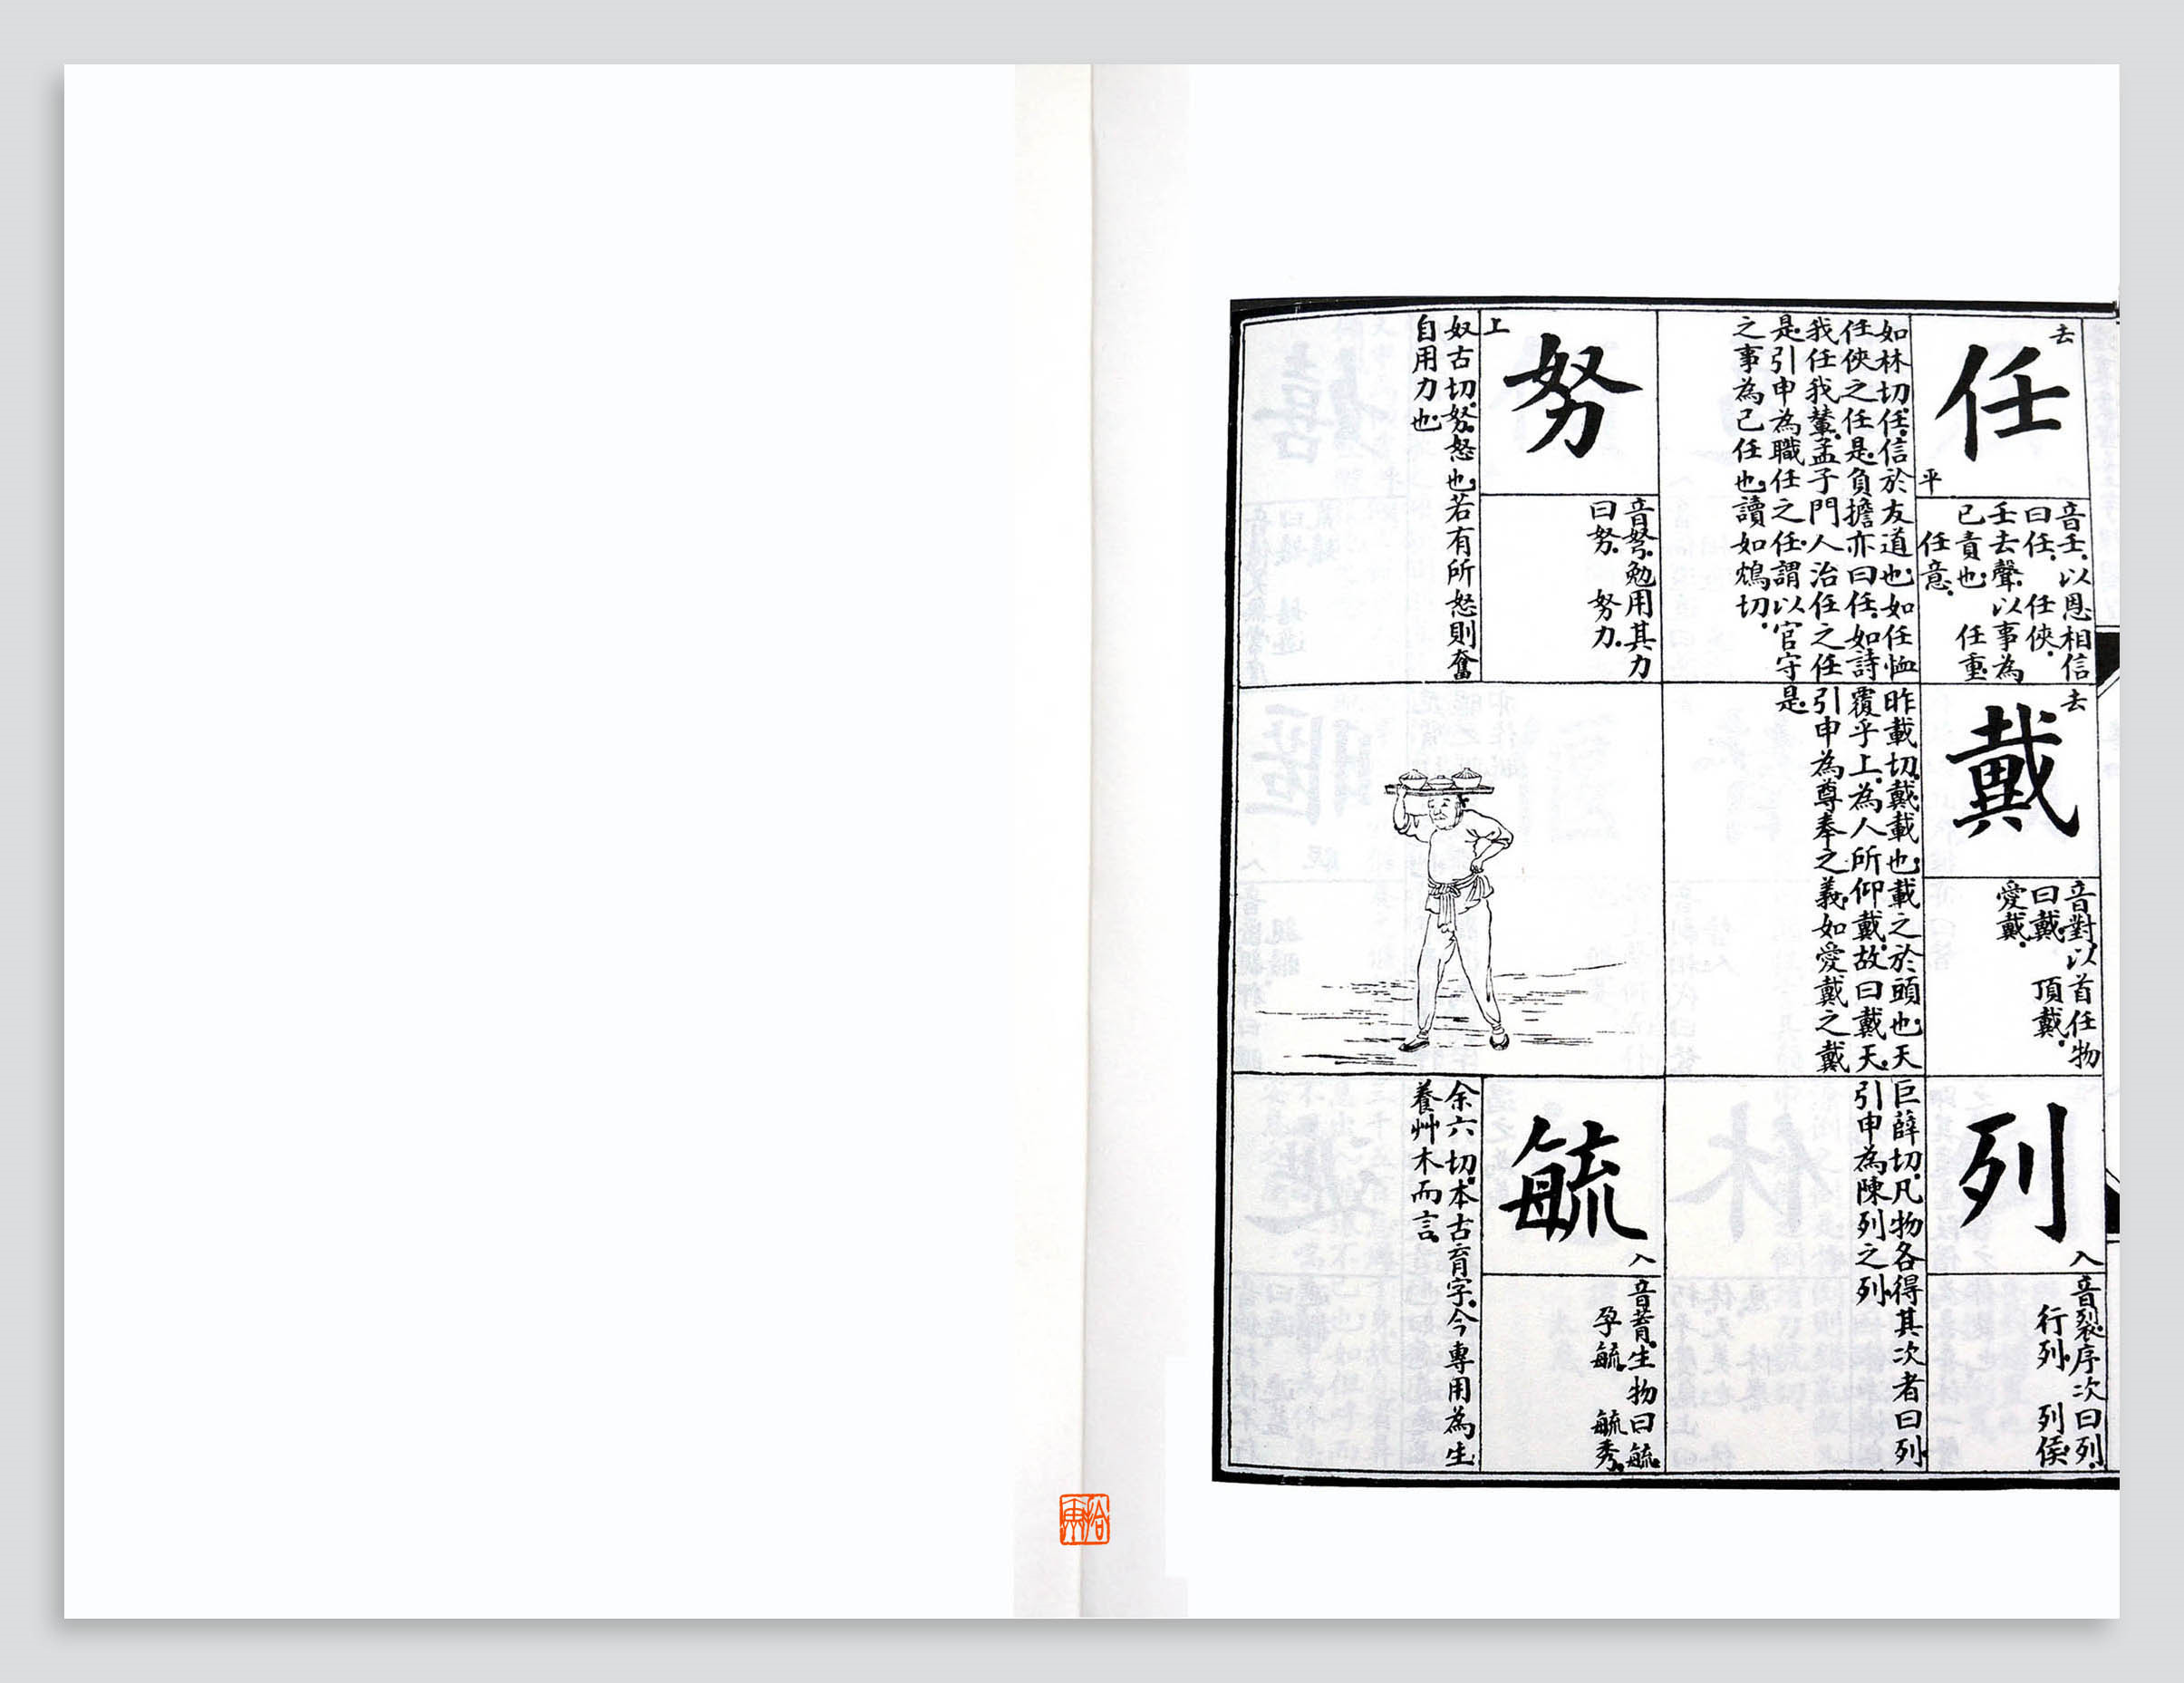 去
任
平
音壬.以恩相信
曰任.任俠.
壬去聲.以事為
已責也任重
任意.
如林切.任.信於友道也.如任恤
任俠之任是.負擔亦曰任.如詩
我任我輦.孟子門人治任之任
是.引申為職任之任.謂以官守
之事為己任也.讀如鴆切.
努
上
音弩.勉用其力
曰努.努力.
奴古切.努.怒也.若有所怒則奮
自用力也.
去
戴
音對.以首任物
曰戴.頂戴.
愛戴.
昨載切.戴.載也.載之於頭也.天
覆乎上.為人所仰戴.故曰戴天.
引申為尊奉之義.如愛戴之戴
是.
列
入
音裂.序次曰列.
行列.列侯
巨薛切.凡物各得其次者曰列.
引申為陳列之列.
毓
入
音蓄.生物曰毓.
孕毓.毓秀.
余六切.本古育字.今專用為生
養艸木而言.